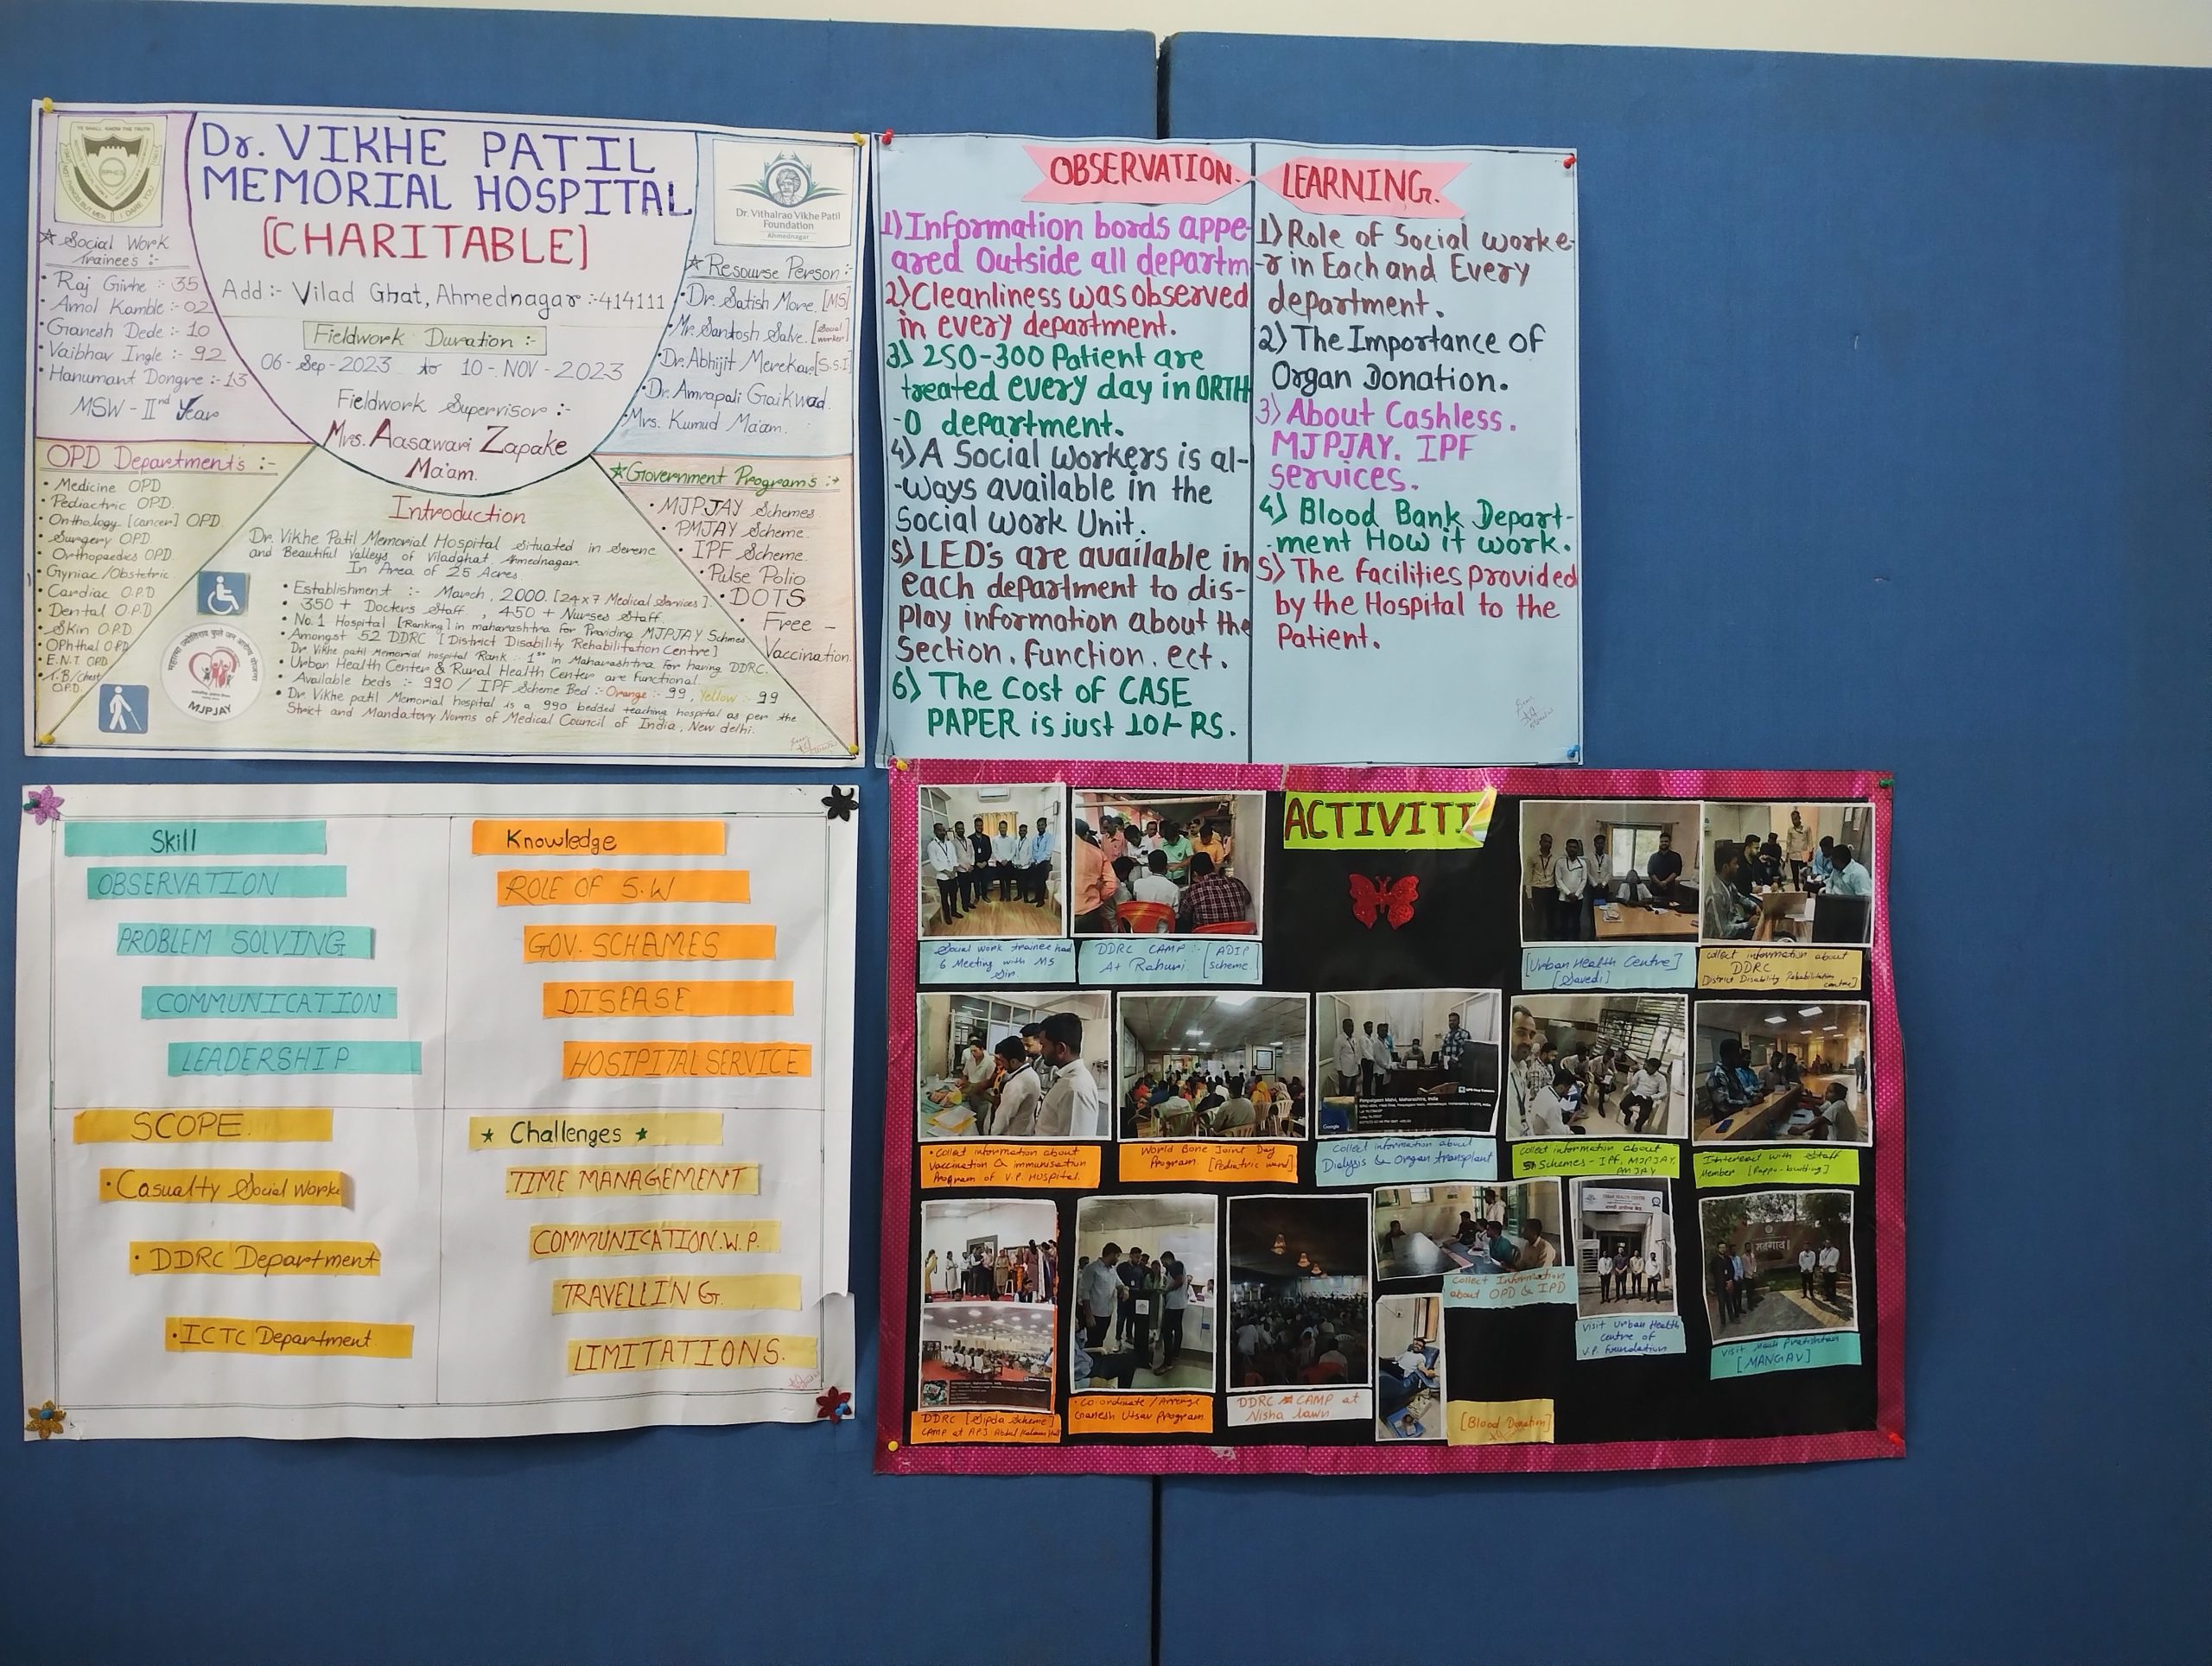 YE SHALL KNOW THE TRUTH
NOT THINGS BUT MEN
I DARE YOU
BPHES
★ Social Work
Trainees :-
• Raj Girhe :- 35
• Amol Kamble :- 02
• Ganesh Dede :- 10
• Vaibhav Ingle :- 92
• Hanumant Dongre :- 13
MSW - IInd Year
Dr. VIKHE PATIL
MEMORIAL HOSPITAL
[CHARITABLE]
Add :- Vilad Ghat, Ahmednagar :- 414111
Fieldwork Duration :-
06 - Sep - 2023 to 10 - NOV - 2023
Fieldwork Supervisor :-
Mrs. Aasawari Zapake
Ma'am.
Dr. Vithalrao Vikhe Patil
Foundation
Ahmednagar
★ Resourse Person :-
• Dr. Satish More. [MS]
• Mr. Santosh Salve. [Social worker]
• Dr. Abhijit Merekar [S.S.I]
• Dr. Amrapali Gaikwad.
• Mrs. Kumud Ma'am.
OPD Department's :-
• Medicine OPD
• Pediactric OPD
• Onthology [cancer] OPD
• Surgery OPD
• Orthopaedics OPD
• Gyniac/Obstetric
• Cardiac O.P.D
• Dental O.P.D
• Skin O.P.D
• OPhthal OPD
• E.N.T. OPD
• T.B/chest
O.P.D.
महात्मा ज्योतिराव फुले जन आरोग्य योजना
MJPJAY
Introduction
Dr. Vikhe Patil Memorial Hospital Situated in Serene
and Beautiful Valleys of Viladghat, Ahmednagar.
In Area of 25 Acres.
• Establishment :- March, 2000. [24x7 Medical Services].
• 350 + Docters Staff , 450 + Nurses Staff.
• No. 1 Hospital [Ranking] in maharashtra for Providing MJPJAY Schmes
• Amongst 52 DDRC [District Disability Rehabilitation Centre]
Dr. Vikhe patil Memorial hospital Rank :- 1st in Maharashtra For having DDRC.
• Urban Health Center & Rural Health Center are Functional
• Available beds :- 990 / IPF Scheme Bed :- Orange :- 99, Yellow :- 99
• Dr. Vikhe patil Memorial hospital is a 990 bedded teaching hospital as per the
Strict and Mandatory Norms of Medical Council of India, New delhi.
★ Government Program's :-
• MJPJAY Schemes
• PMJAY Scheme.
• IPF Scheme.
• Pulse Polio
• DOTS
• Free -
Vaccination.
OBSERVATION.
1) Information bords appe-
ared Outside all departm
2) Cleanliness was observed
in every department.
3) 250-300 Patient are
treated every day in ORTH
-O department.
4) A Social workers is al-
-ways available in the
Social Work Unit.
5) LED's are available in
each department to dis-
play information about the
Section, function, ect.
6) The Cost of CASE
PAPER is just 10/- RS.
LEARNING.
1) Role of Social worke-
-r in Each and Every
department.
2) The Importance of
Organ Donation.
3) About Cashless.
MJPJAY. IPF
services.
4) Blood Bank Depart-
-ment How it work.
5) The facilities provided
by the Hospital to the
Patient.
Skill
OBSERVATION
PROBLEM SOLVING
COMMUNICATION
LEADERSHIP
Knowledge
ROLE OF S.W
GOV. SCHAMES
DISEASE
HOSIPITAL SERVICE
SCOPE.
• Casualty Social Worke
• DDRC Department
• ICTC Department
★ Challenges ★
TIME MANAGEMENT
COMMUNICATION.W.P.
TRAVELLING.
LIMITATIONS.
ACTIVITI
Social work trainee had
6 Meeting with MS
Sir
DDRC CAMP :- [ADIP
At Rahuri. scheme]
[Urban Health Centre]
[Savedi]
collect information about
DDRC
[District Disability Rehabilitation
centre]
• collect information about
Vaccination & immunisation
Program of V.P. Hospital.
World Bone Joint Day
Program. [Pediatric ward]
Pimpalgaon Malvi, Maharashtra, India
Google
Collect information about
Dialysis & Organ transplant
collect information about
Schemes - IPF, MJPJAY,
PMJAY
Interead with Staff
Member [Rappo-buiding]
DDRC [Sipda Scheme]
CAMP at APJ Abdul Kalam Hall
• Co-ordinate / Arrange
Ganesh Utsav Program
DDRC CAMP at
Nisha lawn
collect Information
about OPD & IPD
[Blood Donation]
URBAN HEALTH CENTRE
visit Urban Health
Centre of
V.P. Foundation
मनगाव
visit Mauli Pratishthan
[MANGAV]